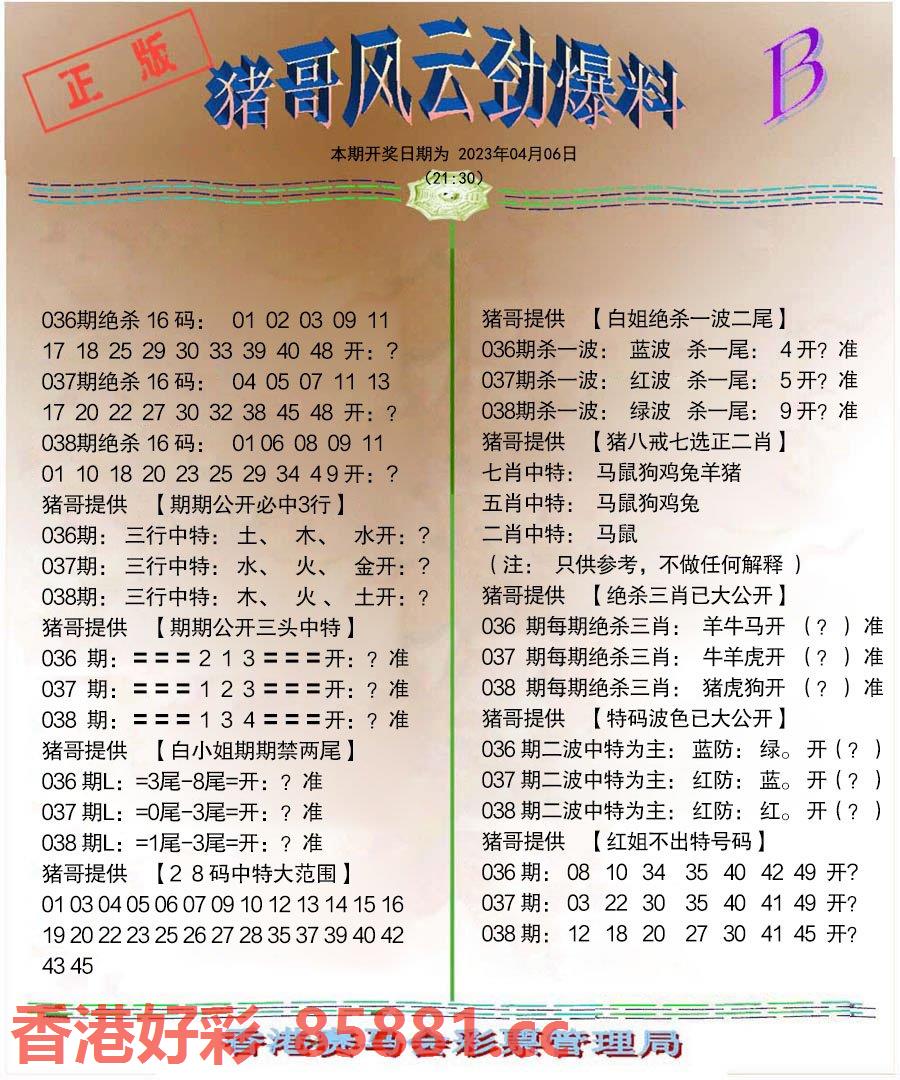 正版
猪哥风云劲爆料
B
本期开奖日期为 2023年04月06日
(21:30)
036期绝杀16码： 01 02 03 09 11
17 18 25 29 30 33 39 40 48 开：？
037期绝杀16码： 04 05 07 11 13
17 20 22 27 30 32 38 45 48 开：？
038期绝杀16码： 01 06 08 09 11
01 10 18 20 23 25 29 34 49开：？
猪哥提供 【期期公开必中3行】
036期： 三行中特： 土、 木、 水开：？
037期： 三行中特： 水、 火、 金开：？
038期： 三行中特： 木、 火、 土开：？
猪哥提供 【期期公开三头中特】
036 期：===213===开：？准
037 期：===123===开：？准
038 期：===134===开：？准
猪哥提供 【白小姐期期禁两尾】
036期L：=3尾-8尾=开：？准
037期L：=0尾-3尾=开：？准
038期L：=1尾-3尾=开：？准
猪哥提供 【28码中特大范围】
01 03 04 05 06 07 09 10 12 13 14 15 16
19 20 22 23 25 26 27 28 35 37 39 40 42
43 45
猪哥提供 【白姐绝杀一波二尾】
036期杀一波： 蓝波 杀一尾： 4开？准
037期杀一波： 红波 杀一尾： 5开？准
038期杀一波： 绿波 杀一尾： 9开？准
猪哥提供 【猪八戒七选正二肖】
七肖中特： 马鼠狗鸡兔羊猪
五肖中特： 马鼠狗鸡兔
二肖中特： 马鼠
（注： 只供参考，不做任何解释）
猪哥提供 【绝杀三肖已大公开】
036 期每期绝杀三肖： 羊牛马开 （？）准
037 期每期绝杀三肖： 牛羊虎开 （？）准
038 期每期绝杀三肖： 猪虎狗开 （？）准
猪哥提供 【特码波色已大公开】
036期二波中特为主： 蓝防：绿。开（？）
037期二波中特为主： 红防：蓝。开（？）
038期二波中特为主： 红防：红。开（？）
猪哥提供 【红姐不出特号码】
036期： 08 10 34 35 40 42 49 开?
037期： 03 22 30 35 40 41 49 开?
038期： 12 18 20 27 30 41 45 开?
香港好彩 85881.cc
香港赛马会彩票管理局